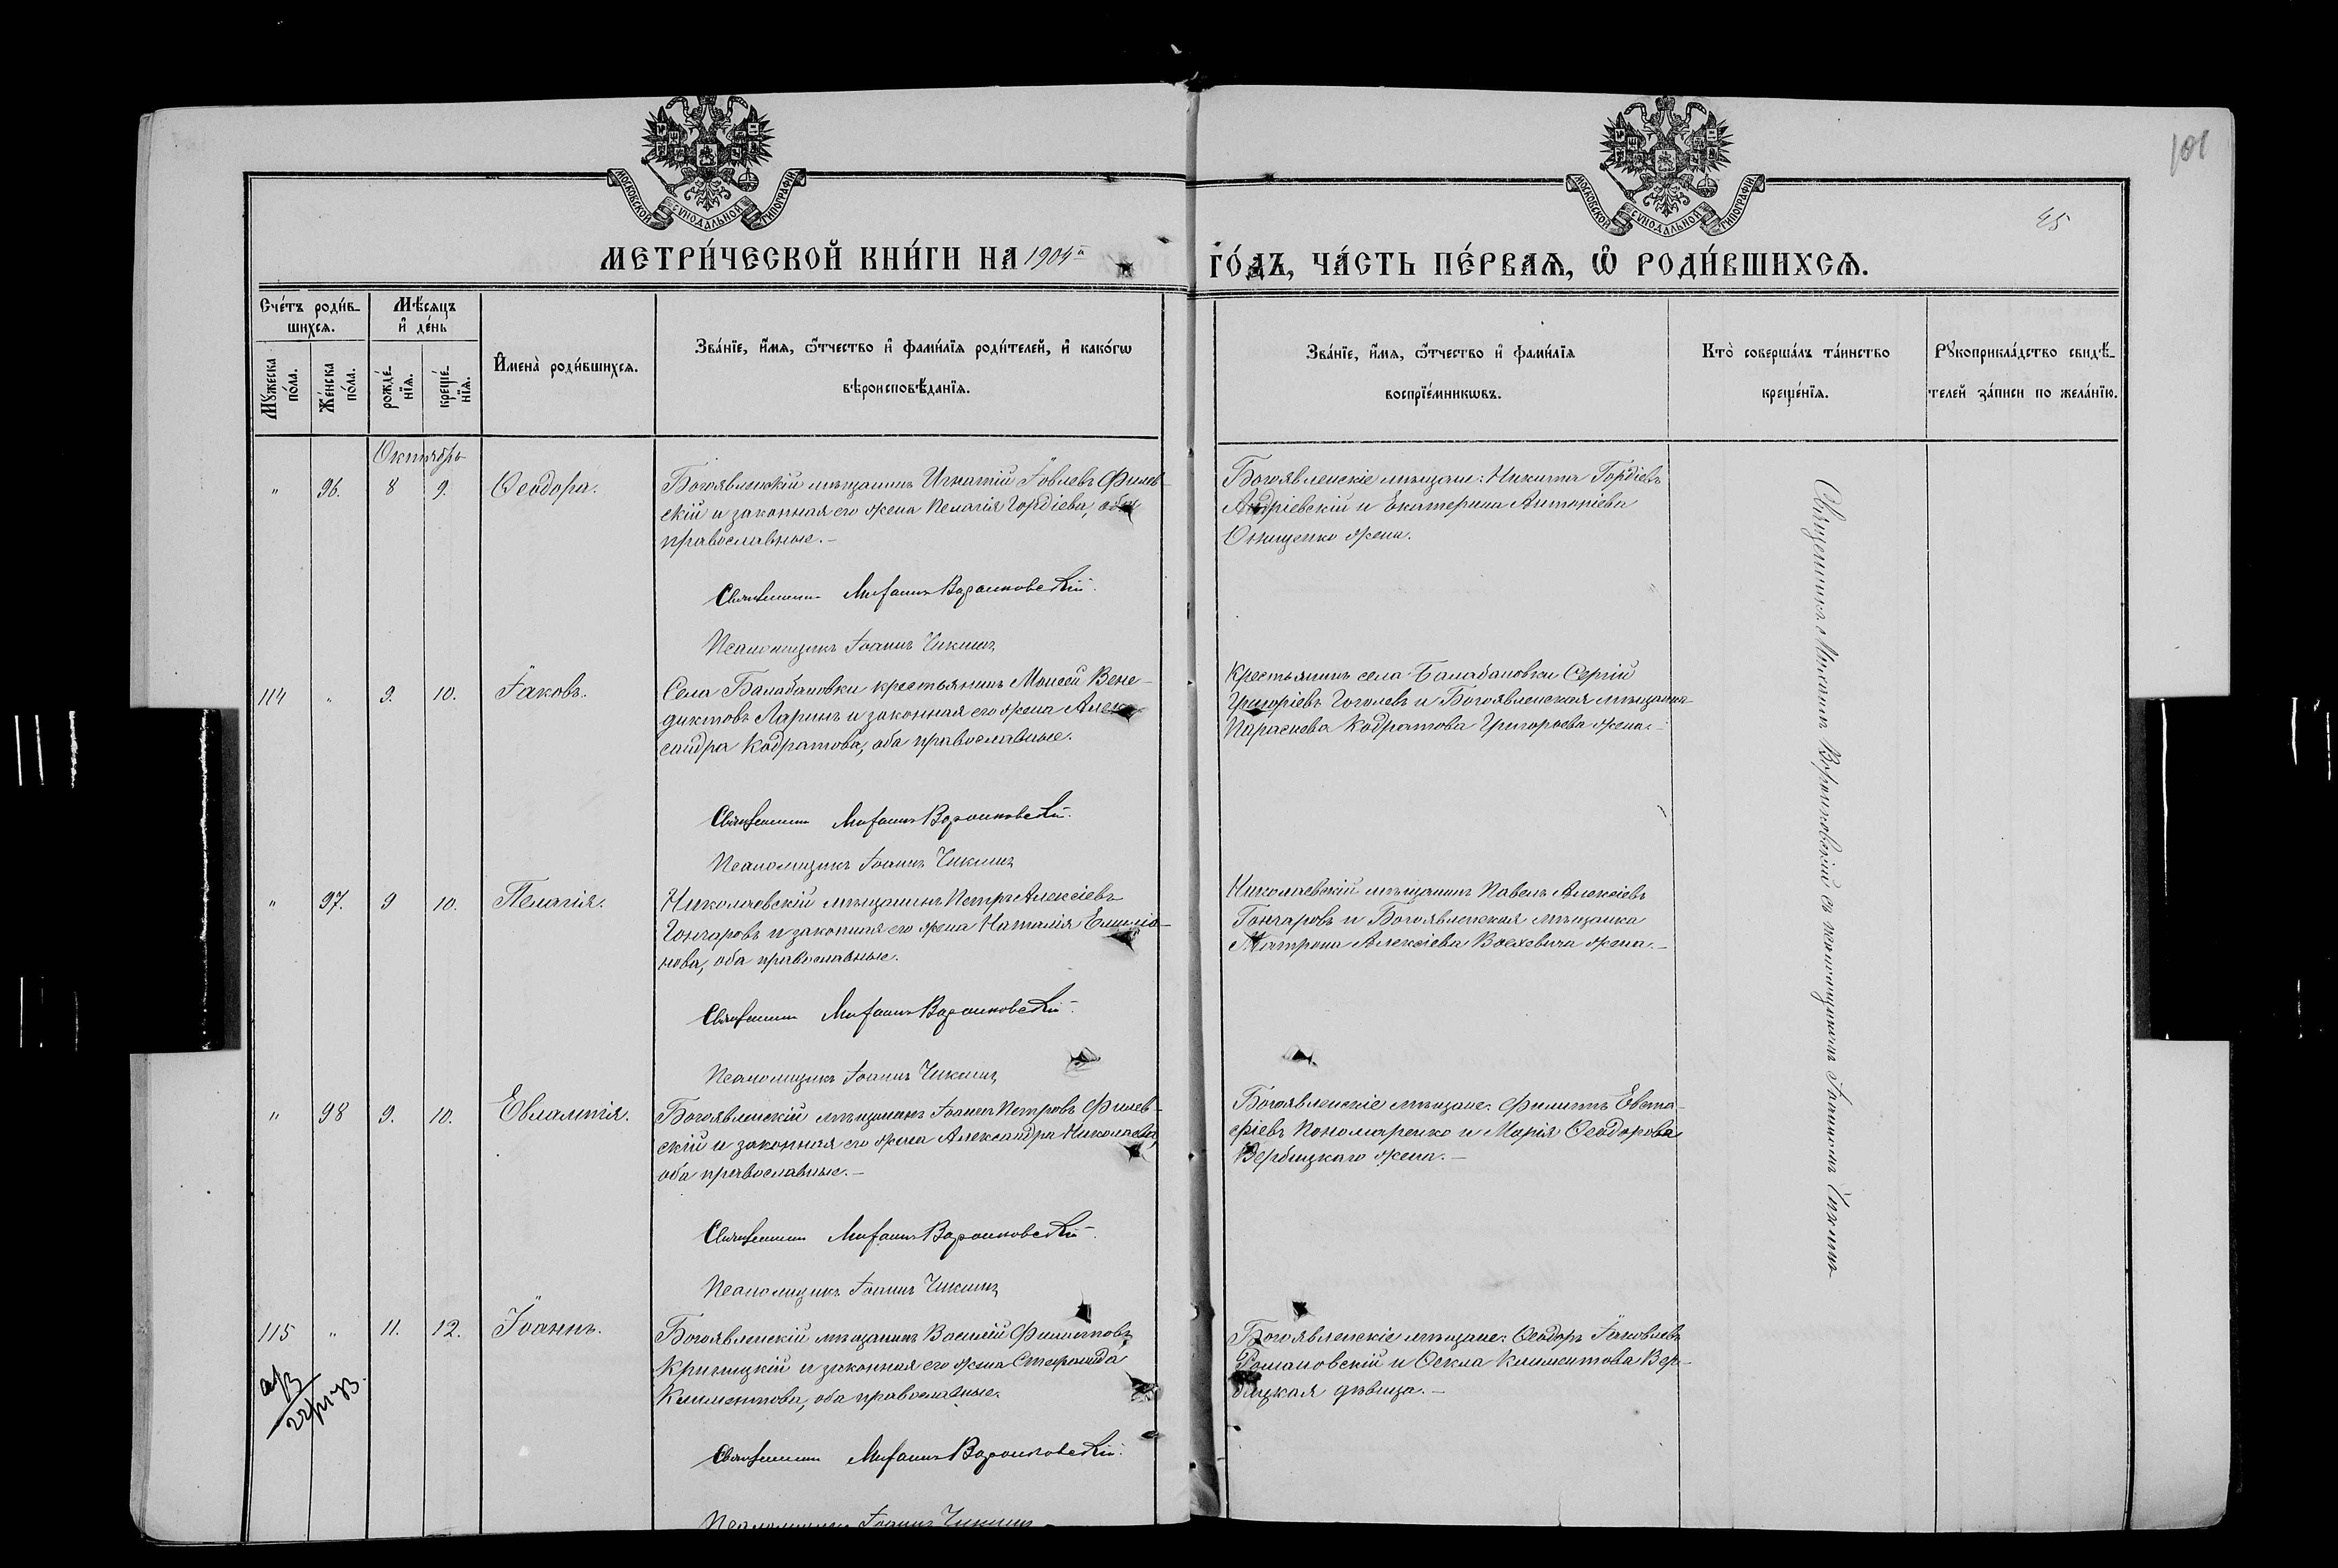 101
45
МОСКОВСКОЙ СѴНОДАЛЬНОЙ ТИПОГРАФІИ
МОСКОВСКОЙ СѴНОДАЛЬНОЙ ТИПОГРАФІИ
МЕТРИ́ЧЕСКОЙ КНИ́ГИ НА 1904й
ГО́ДЪ, ЧА́СТЬ ПЕ́РВАѦ, Ѡ҆ РОДИ́ВШИХСѦ.
Сче́тъ роди́в-
шихсѧ.
Мꙋ́жеска по́ла.
Же́нска по́ла.
Мѣ́сѧцъ
и҆ де́нь
рожде́-
нїѧ.
креще́-
нїѧ.
И҆мена̀ роди́вшихсѧ.
Зва́нїе, и҆́мѧ, ѻ҆́тчество и҆ фами́лїѧ роди́телей, и҆ како́гѡ
вѣроисповѣ́данїѧ.
Зва́нїе, и҆́мѧ, ѻ҆́тчество и҆ фами́лїѧ
воспрїе́мникѡвъ.
Кто̀ соверша́лъ та́инство
креще́нїѧ.
Рꙋкоприкла́дство свидѣ́-
телей за́писи по жела́нїю.
Октябрь
" 96. 8 9. Ѳеодора.
Богоявленскій мѣщанинъ Игнатій Іовлевъ Филев-
скій и законная его жена Пелагія Гордіева, оба
православные.-
Священникъ Михаилъ Воронковскій.
Псаломщикъ Іоаннъ Чикинъ
Богоявленскіе мѣщане: Никита Гордіевъ
Андріевскій и Екатерина Антоніева
Онищенко жена.
114 " 9. 10. Іаковъ.
Села Балабановки крестьянинъ Моисей Вене-
диктовъ Ларинъ и законная его жена Алек-
сандра Кодратова, оба православные.
Священникъ Михаилъ Воронковскій.
Псаломщикъ Іоаннъ Чикинъ
Крестьянинъ села Балабановки Сергій
Григоріевъ Гоголевъ и Богоявленская мѣщанка
Параскева Кодратова Григорьева жена.-
" 97. 9 10. Пелагія.
Николаевскій мѣщанинъ Петръ Алексіевъ
Гончаровъ и законная его жена Наталія Емилiа-
нова, оба православные.
Священникъ Михаилъ Воронковскій.
Псаломщикъ Іоаннъ Чикинъ
Николаевскій мѣщанинъ Павелъ Алексіевъ
Гончаровъ и Богоявленская мѣщанка
Матрона Алексіева жена.-
" 98 9. 10. Евлампія.
Богоявленскій мѣщанинъ Іоаннъ Петровъ Филев-
скій и законная его жена Александра Николаева,
оба православные.-
Священникъ Михаилъ Воронковскій.
Псаломщикъ Іоаннъ Чикинъ
Богоявленскіе мѣщане: Филиппъ Евста-
фіевъ Пономаренко и Марія Ѳеодорова
Вербицкаго жена.-
115 " 11. 12. Іоаннъ.
Богоявленскій мѣщанинъ Василій Филиповъ
Криницкій и законная его жена Стефанида
Климентова, оба православные.
Священникъ Михаилъ Воронковскій.
Псаломщикъ Іоаннъ Чикинъ
Богоявленскіе мѣщане: Ѳеодоръ Іаковлевъ
Романовскій и Ѳекла Климентова Вер-
бицкая дѣвица.-
Священникъ Михаилъ Воронковскій съ псаломщикомъ Іоанномъ Чикинымъ